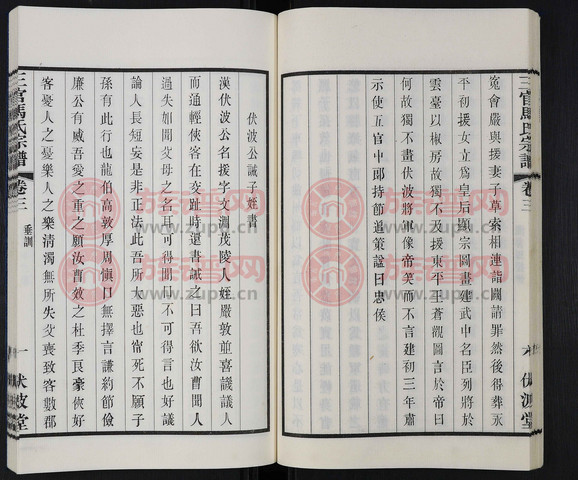 三官馬氏宗譜 卷三
六 伏波堂
冤會嚴與援妻子草索相連詣闕請罪然後得葬永
平初援女立爲皇后顯宗圖畫建武中名臣列將於
雲臺以椒房故獨不及援東平王蒼觀圖言於帝曰
何故獨不畫伏波將軍像帝笑而不言建初三年肅
示使五官中郎持節追策諡曰忠侯
伏波公誡子姪書
漢伏波公名援字文淵茂陵人姪嚴敦並喜譏議人
而通輕俠客在交趾時還書誡之曰吾欲汝曹聞人
過失如聞父母之名耳可得聞口不可得言也好議
論人長短妄是非正法此吾所大惡也甯死不願子
孫有此行也龍伯高敦厚周愼口無擇言謙約節儉
廉公有威吾愛之重之願汝曹效之杜季良豪俠好
客憂人之憂樂人之樂清濁無所失父喪致客數郡
三官馬氏宗譜 卷三 垂訓
一 伏波堂
族譜网
www.zupu.cn
族譜网
www.zupu.cn
族譜网
www.zupu.cn
族譜网
www.zupu.cn